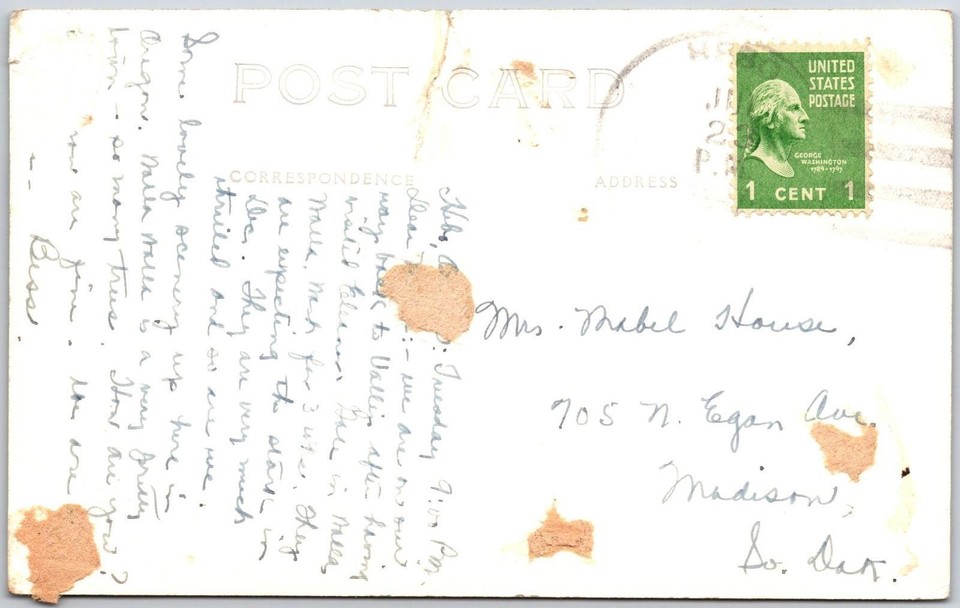 POST CARD
CORRESPONDENCE
ADDRESS
UNITED
STATES
POSTAGE
GEORGE
WASHINGTON
1789-1797
1 CENT 1
Tuesday 9:00 P.M.
Dear :- we are on our
way back to after having
visited Eleanor, in Walla
Walla, Wash for 3 wks. They
are expecting the stork in
Dec. They are very much
thrilled and so are we.
Some lovely scenery up here in
Oregon. Walla Walla is a very pretty
town - so many trees. How are you?
We are
fine.
-- Bess
Mrs. Mabel House,
705 N. Egan Ave.
Madison,
So. Dak.